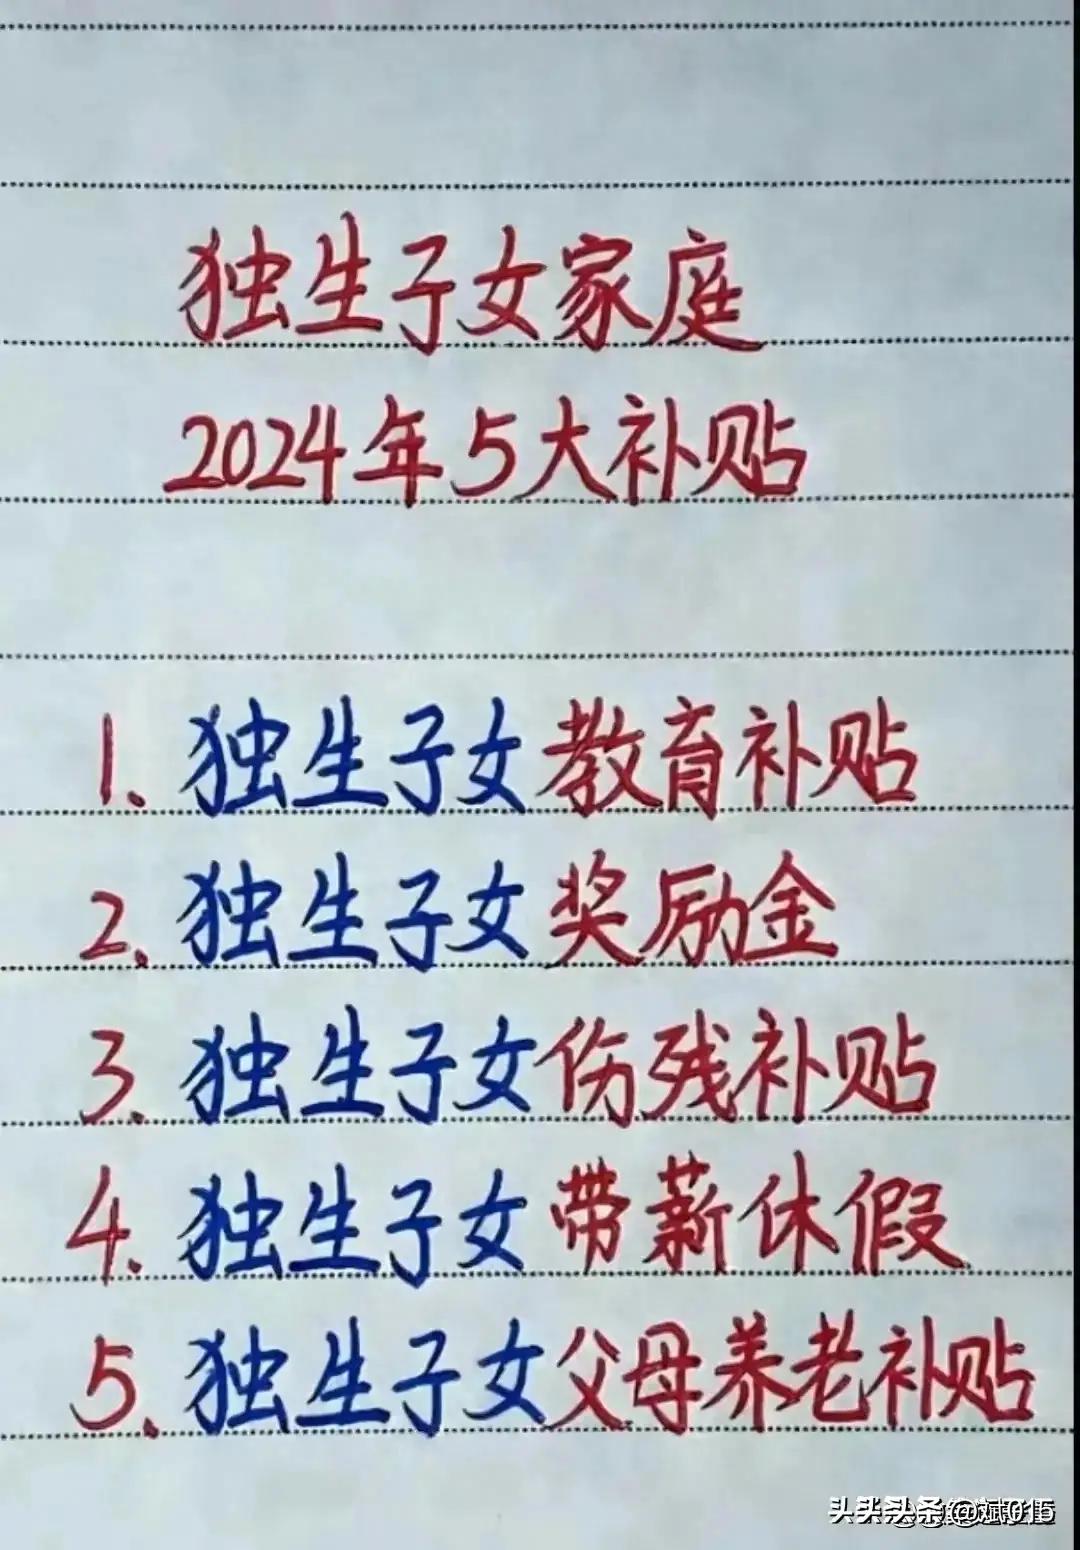 独生子女家庭
2024年5大补贴
1.独生子女教育补贴
2.独生子女奖励金
3.独生子女伤残补贴
4.独生子女带薪休假
5.独生子女父母养老补贴
头条